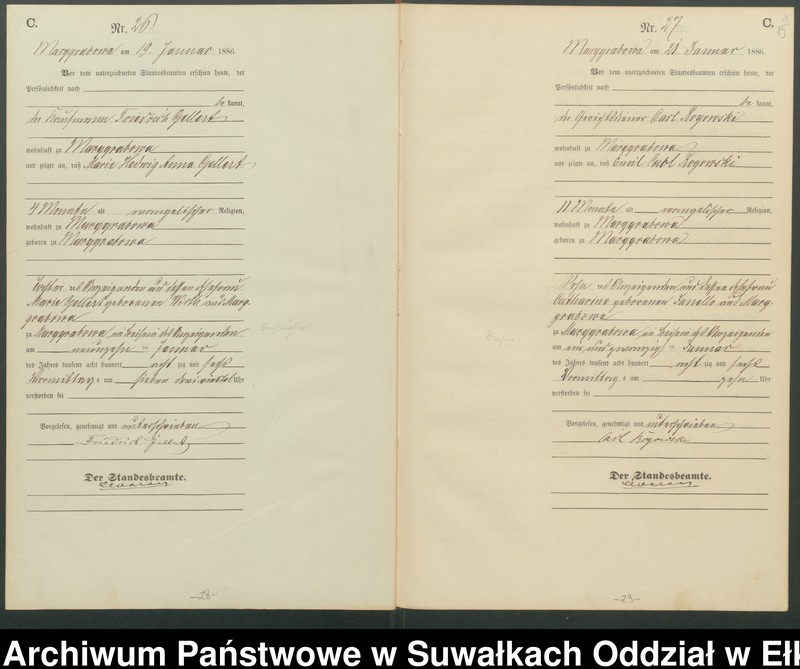 C.
Nr. 26
Marggrabowa am 19. Januar 1886.
Vor dem unterzeichneten Standesbeamten erschien heute, der
Persönlichkeit nach
be kannt,
der Kaufmann Friedrich Gellert
wohnhaft zu Marggrabowa
und zeigte an, daß Marie Hedwig Anna Gellert
4 Monate alt evangelischer Religion,
wohnhaft zu Marggrabowa
geboren zu Marggrabowa
Tochter des Anzeigenden und dessen Ehefrau
Marie Gellert geborenen aus Marg-
grabowa
zu Marggrabowa im Beisein des Anzeigenden
am neunzehn ten Januar
des Jahres tausend acht hundert acht zig und sechs
Vormittags um sieben drei viertel Uhr
verstorben sei
Vorgelesen, genehmigt und unterschrieben
Friedrich Gellert
Der Standesbeamte.
-28-
C.
Nr. 27
Marggrabowa am 21. Januar 1886.
Vor dem unterzeichneten Standesbeamten erschien heute, der
Persönlichkeit nach
be kannt,
der Gerichtsdiener Carl Rogowski
wohnhaft zu Marggrabowa
und zeigte an, daß Emil Carl Rogowski
11 Monate alt evangelischer Religion,
wohnhaft zu Marggrabowa
geboren zu Marggrabowa
Sohn des Anzeigenden und dessen Ehefrau
Catharina geborenen aus Marg-
grabowa
zu Marggrabowa im Beisein des Anzeigenden
am ein und zwanzig ten Januar
des Jahres tausend acht hundert acht zig und sechs
Vormittags um zehn Uhr
verstorben sei
Vorgelesen, genehmigt und unterschrieben
Carl Rogowski
Der Standesbeamte.
-29-
Archiwum Państwowe w Suwałkach Oddział w Eł